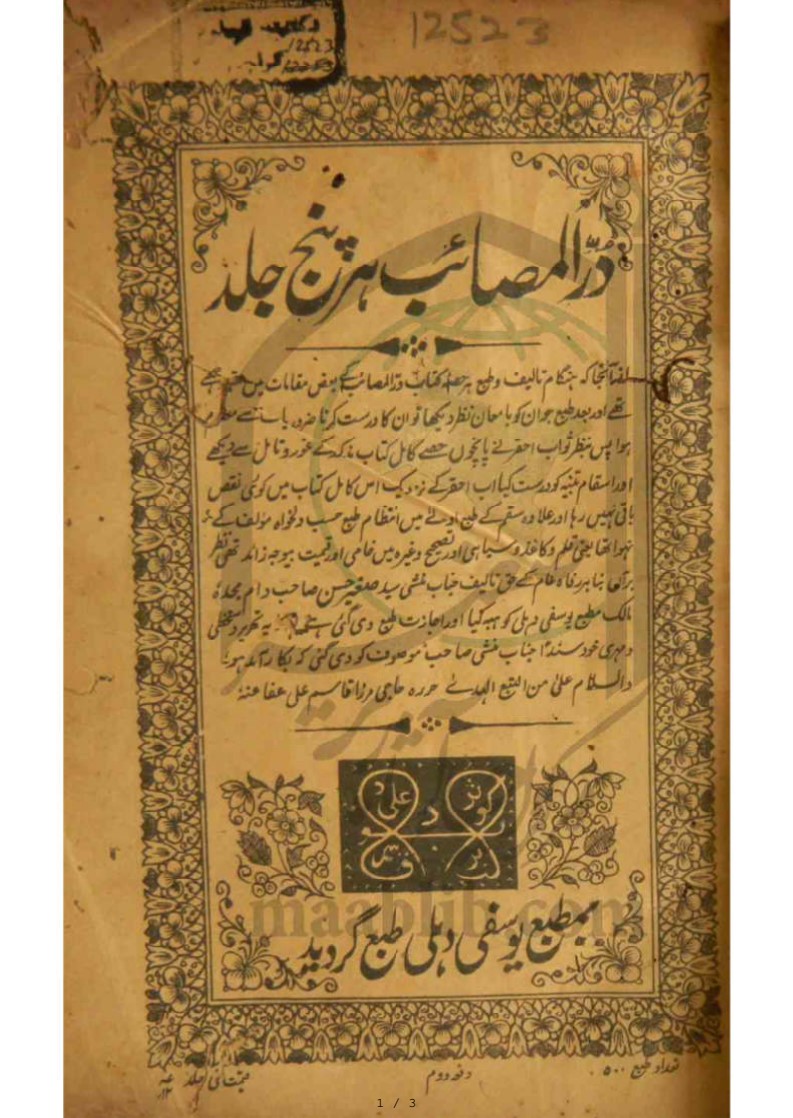 12523
12523
دُرّ المصائب ہر پنج جلد
کہ ہنگام تالیف و طبع ہر حصہ کتاب در المصائب کے بعض مقامات میں
تھے اور بعد طبع جو ان کو بامعان نظر دیکھا تو ان کا درست کرنا ضرور
ہوا پس بنظر ثواب احقر نے پانچوں حصے کامل کتاب مذکور کے غور و تامل سے دیکھے
اور اسقام کو درست کیا اب احقر کے نزدیک اس کامل کتاب میں کوئی نقص
باقی نہیں رہا اور علاوہ سقم کے طبع اولے میں انتظام طبع حسب دلخواہ مؤلف کے
نہوا تھا یعنی قلم و کاغذ و سیاہی اور تصحیح وغیرہ میں خامی اور قیمت بوجہ زائد تھی نظر
برآں بنا بر رفاہ عام کے حق تالیف جناب منشی سید صغیر حسن صاحب دام مجدہ
مالک مطبع یوسفی دہلی کو ہبہ کیا اور اجازت طبع دی گئی یہ تحریر دستخطی
و مہری خود سنداً جناب منشی صاحب موصوف کو دی گئی کہ بکار آمد ہو
والسلام علیٰ من اتبع الہدیٰ حررہ حاجی مرزا قاسم علی عفا عنہ
بمطبع یوسفی دہلی طبع گردید
maablib.com
تعداد طبع ۵۰۰
دفعہ دوم
قیمت فی جلد
1 / 3